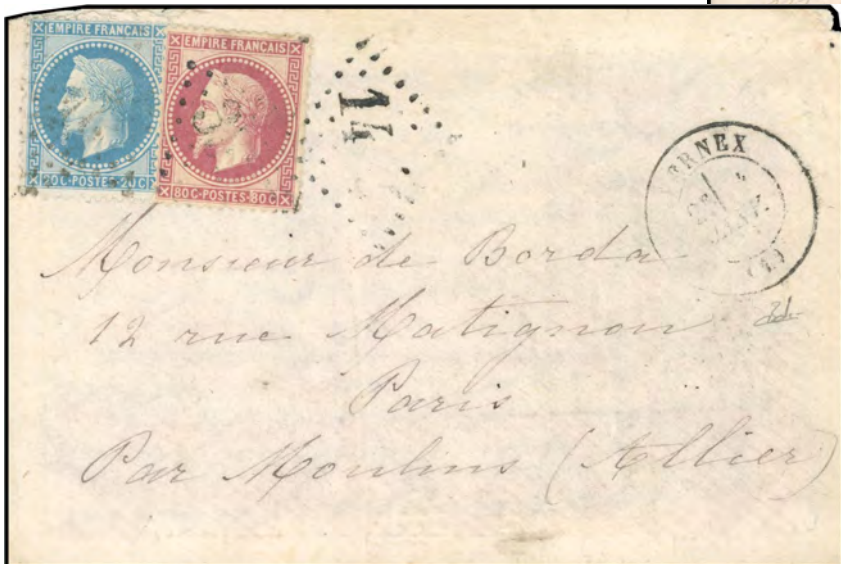 EMPIRE FRANÇAIS
20C·POSTES·20C
EMPIRE FRANÇAIS
80C·POSTES·80C
14
FERNEX
(1)
Monsieur de Borda
12 rue Matignon
Paris
Par Moulins (Allier)